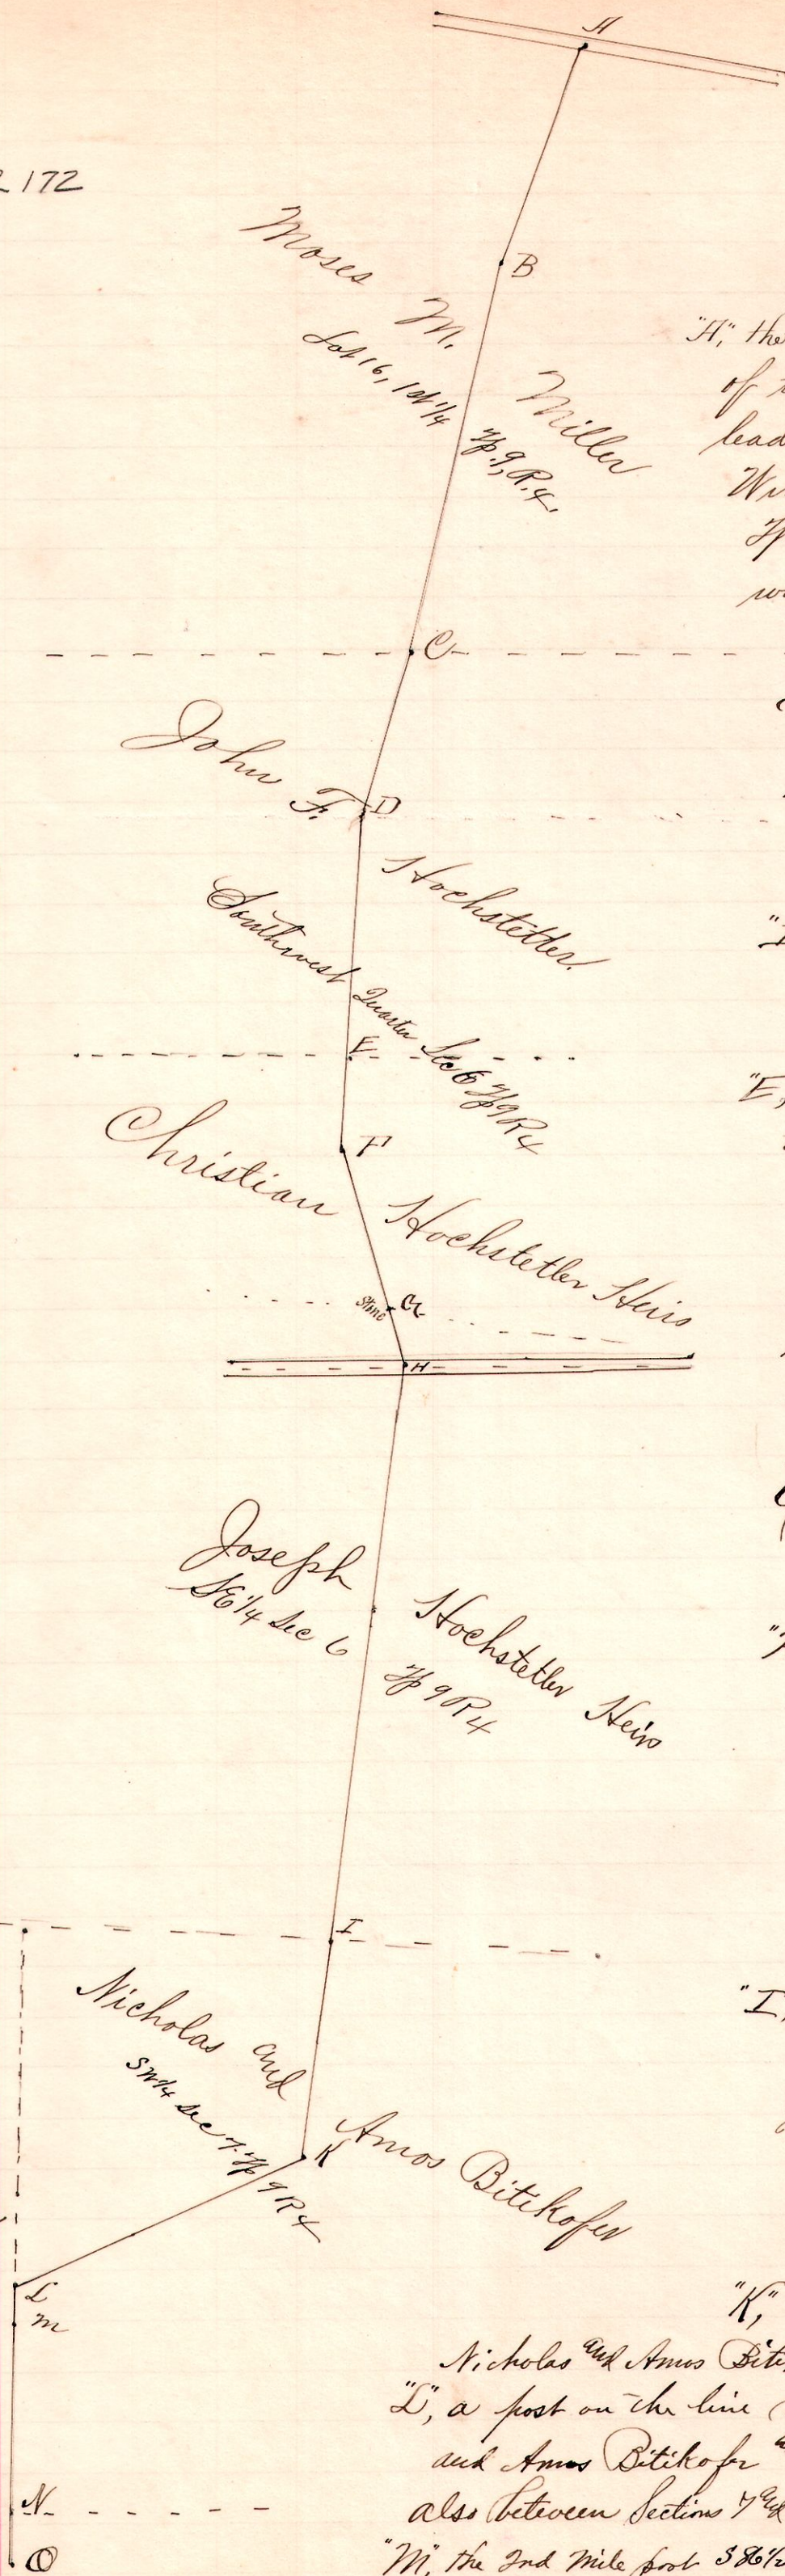 A
172
B
Moses M. Miller
Lot 16, 1st 1/4 Tp. 9, R. 4.
"A", the
of
lead
C
John F. Hochstetler
D
Southwest Quarter Sec 6 Tp 9 R 4
E
"E,
F
Christian Hochstetler Heirs
Stone G
H
Joseph Hochstetler Heirs
SE 1/4 Sec 6 Tp 9 R 4
I
"I,
Nicholas and Amos Bitikofer
Sec 7 Tp 9 R 4
K
L
M
"K,"
Nicholas and Amos
"L", a post on the line
and Amos Bitikofer
N
also between Sections 7 and
O
"M", the 2nd mile post S 86 1/2